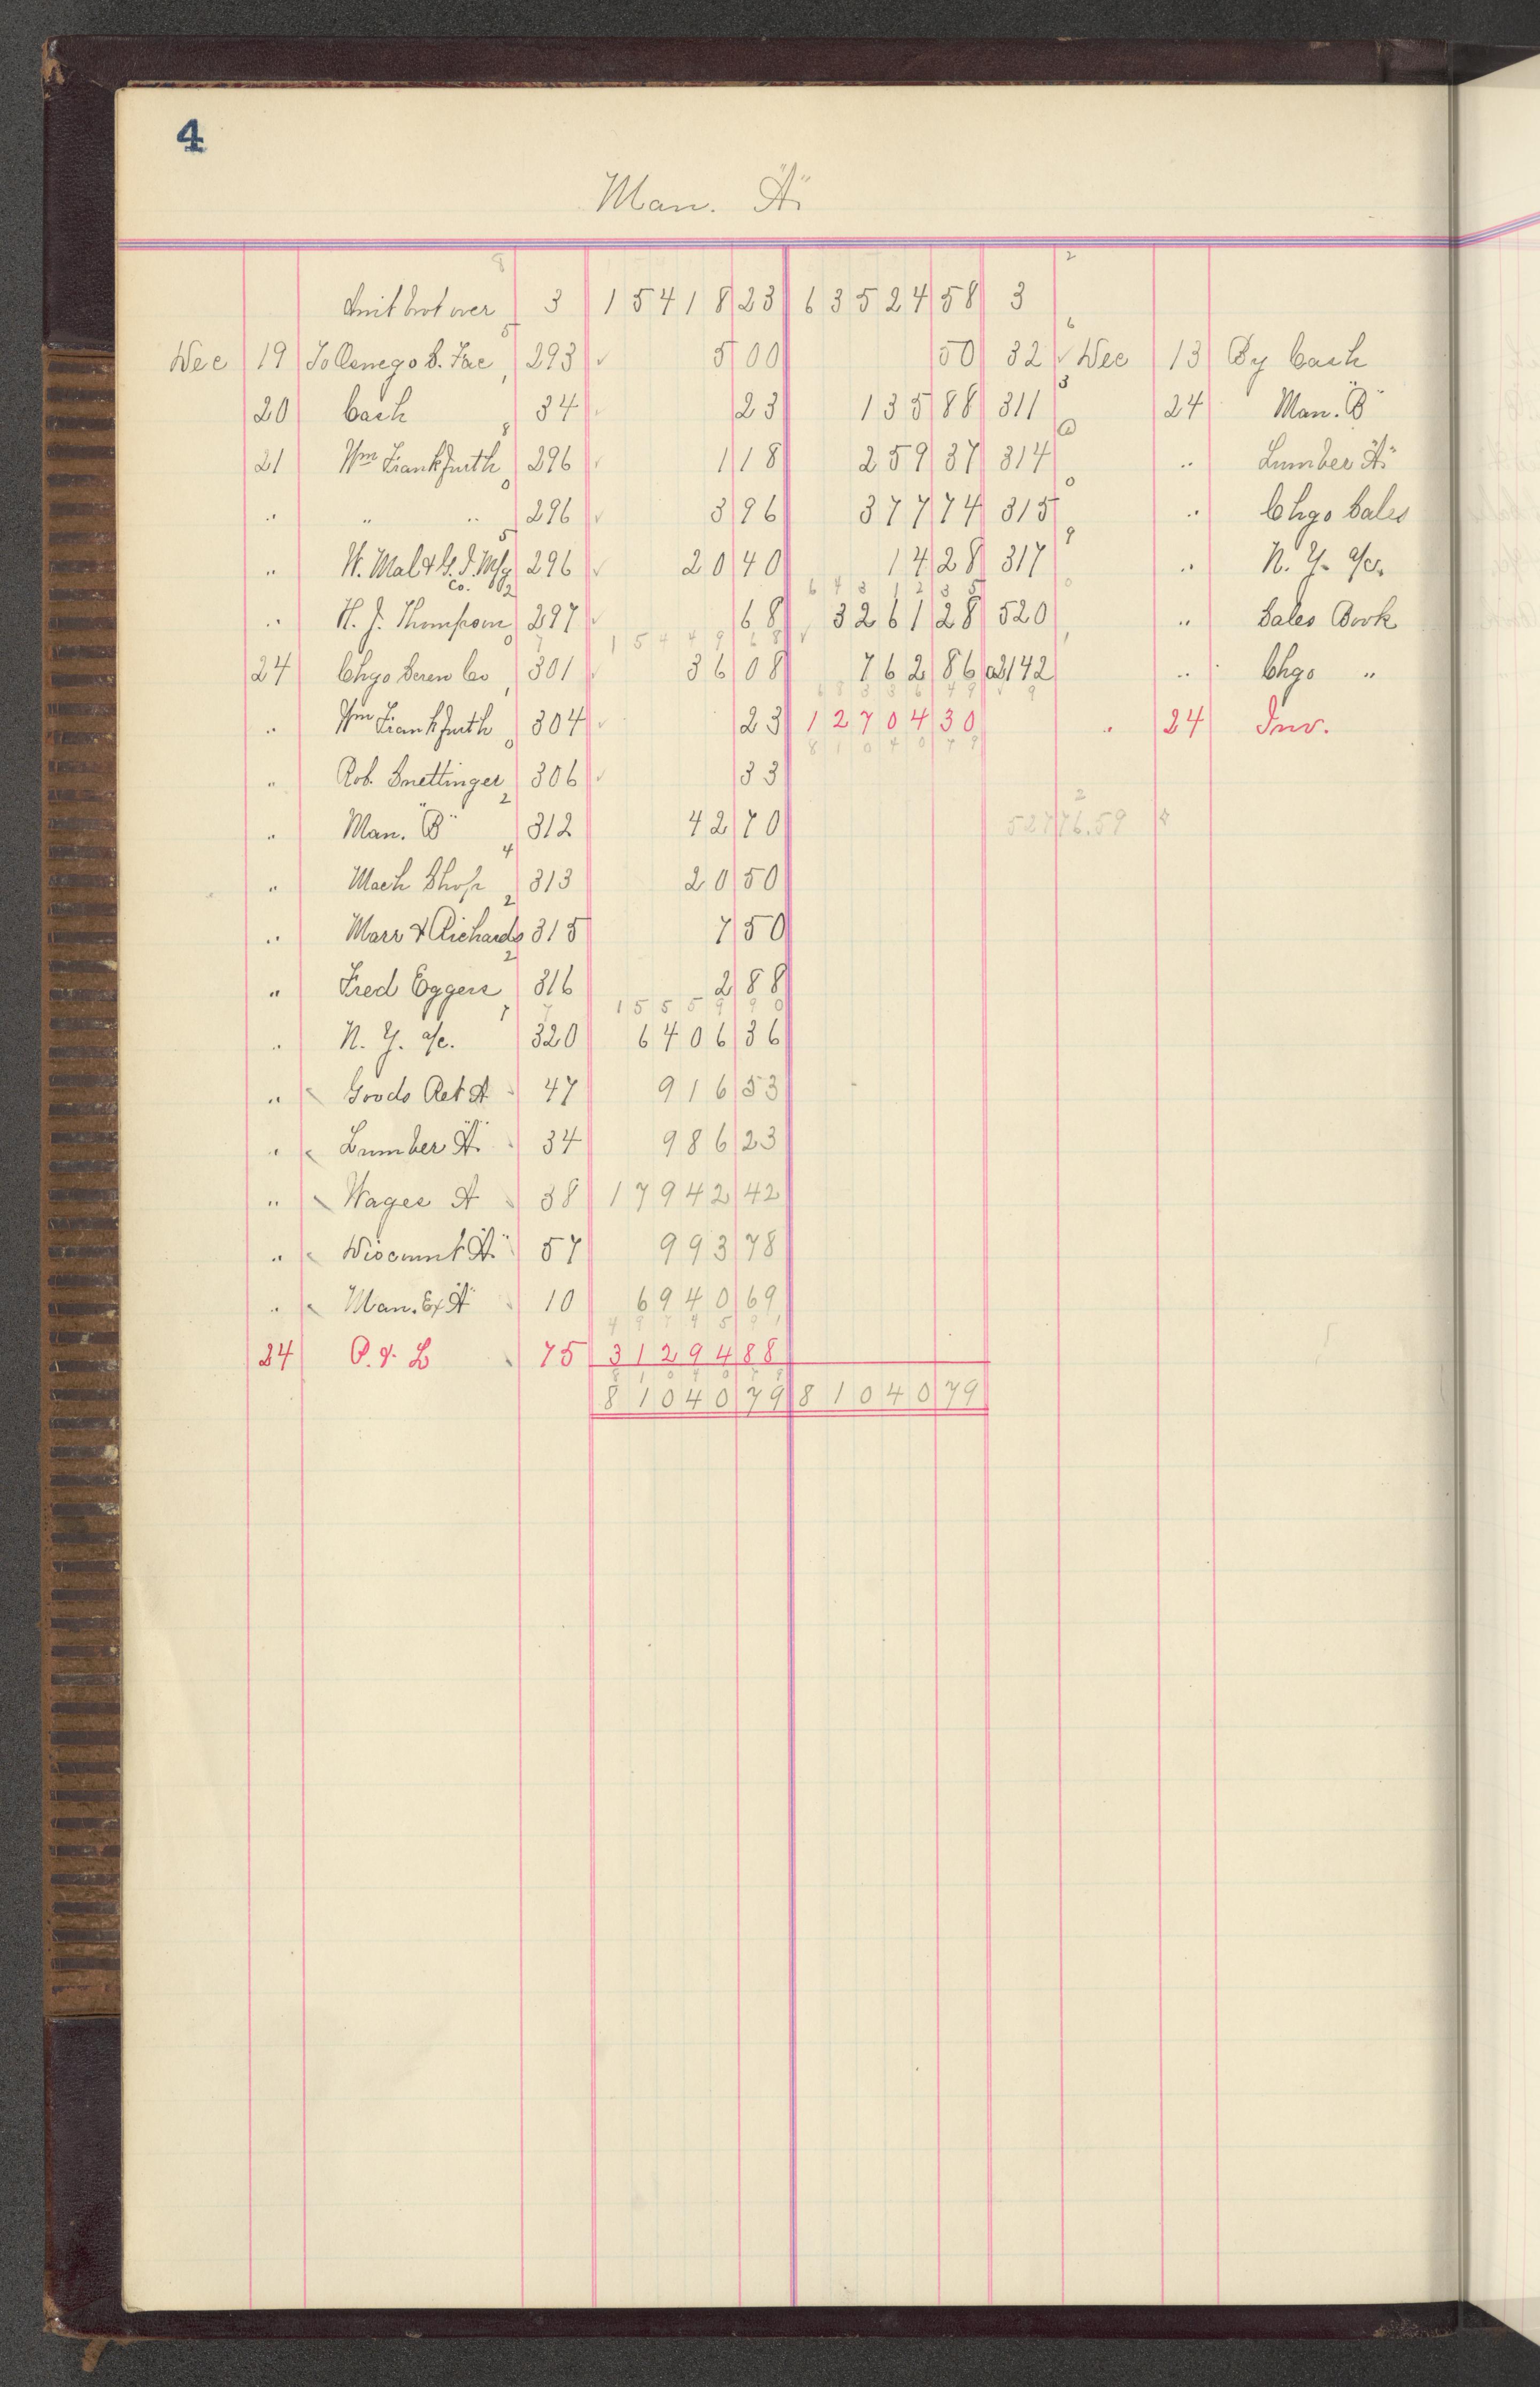 4
Man. "A"
Amt brot over 3 15418 23 63524 58 3
Dec 19 To Oswego S. Fac 293 5 00 50 32 Dec 13 By Cash
20 Cash 34 23 135 88 311 24 Man. "B"
21 Wm Frankfurth 296 1 18 259 37 314 " Lumber "A"
" " " 296 3 96 377 74 315 " Chgo Sales
" W. Mal & G. I. Mfg Co. 296 20 40 14 28 317 " N. Y. a/c.
643 12 35
" H. J. Thompson 297 68 3261 28 520 " Sales Book
15449 68
24 Chgo Screw Co 301 36 08 762 86 142 " Chgo "
68336 49
" Wm Frankfurth 304 23 12704 30 " 24 Inv.
81040 79
" Rob. Snettinger 306 33
" Man. "B" 312 42 70 52776.59
" Mach Shop 313 20 50
" Marr & Richards 315 7 50
" Fred Eggers 316 2 88
15559 90
" N. Y. a/c. 320 6406 36
" Goods Ret A 47 916 53
" Lumber "A" 34 986 23
" Wages A 38 17942 42
" Discount "A" 57 993 78
" Man. Ex "A" 10 6940 69
49745 91
24 P. & L 75 31294 88
81040 79
81040 79 81040 79